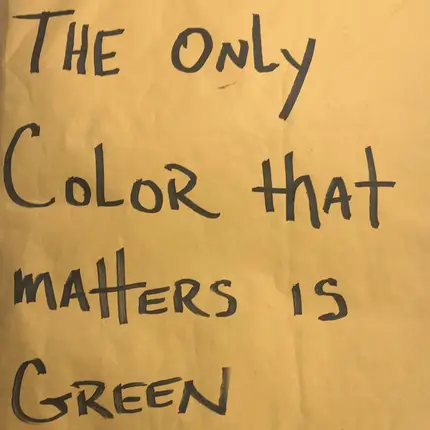 THE ONLY
COLOR that
mATTERS IS
GREEN